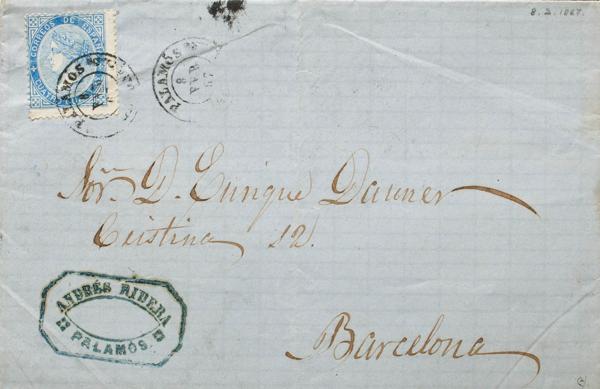 8. 2. 1867.
CORREOS DE ESPAÑA
CUATRO
PALAMÓS
PALAMÓS
8
67
Sor. D. Enrique Dauner
Cristina 12.
ANDRÉS RIBERA
PALAMÓS
Barcelona